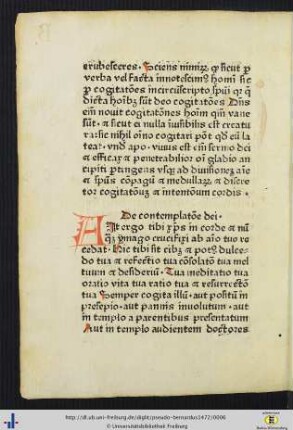 erubesceres. Sciens nimirum qp sicut p
verba vel facta innotescimꝰ homī sic
p cogitatōes incircūscripto spūi qꝛ q̄
dicta hoībꝫ sūt deo cogitatōes Dn̄s
eīm nouit cogitatōnes hoīm qm̄ vane
sūt. ⁊ sicut ei nulla īuisibilis est creatu
ra: sic nihil oīno cogitari pōt qd̄ eū la
teat. vnd apo. viuus est eīm sermo dei
⁊ efficax ⁊ penetrabilior oī gladio an
cipiti ꝑtingens vsqꝫ ad diuisionez aīe
⁊ spūs cōpagū ⁊ medullarꝫ ⁊ discre
tor cogitatōuꝫ ⁊ intentōum cordis.
De contemplatōe dei.
Ait ergo tibi xp̄s in corde ⁊ nū
qͣꝫ ymago crucifixi ab aīo tuo re
cedat. Hic tibi sit cibꝫ ⁊ potꝰ dulce
do tua ⁊ refectio tua cōsolatō tua mel
tuum ⁊ desideriū. Tua meditatio tua
oratio vita tua ratio tua ⁊ resurrectō
tua Semper cogita illū. aut positū in
presepio. aut pannis inuolutum. aut
in templo a parentibus presentatum
Aut in templo audientem doctores
http://dl.ub.uni-freiburg.de/diglit/pseudo-bernardus1472/0096
© Universitätsbibliothek Freiburg